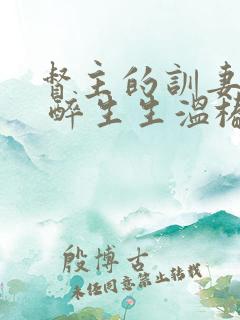 督主的訓妻
醉生生溫
殷博古
未经同意禁止转载